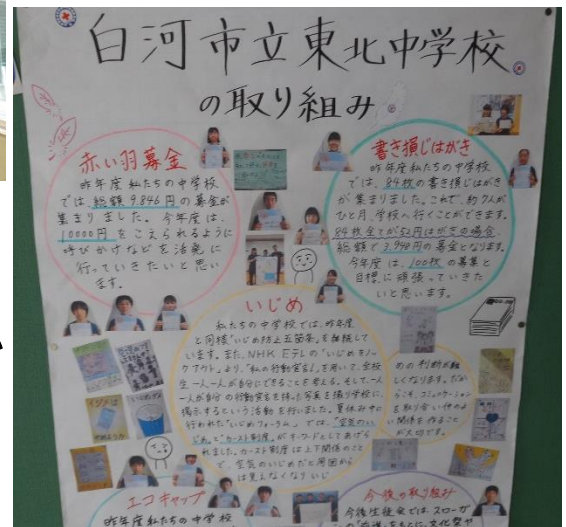 白河市立東北中学校
の取り組み
赤い羽募金
昨年度私たちの中学校
では、総額9,846円の募金が
集まりました。今年度は、
10000円をこえられるように
呼びかけなどを活発に
行っていきたいと思い
ます。
書き損じはがき
昨年度私たちの中学校
では、84枚の書き損じはがき
が集まりました。これで、約7人が
ひと月、学校へ行くことができます。
84枚全てが52円はがきの場合、
総額で3,948円の募金となります。
今年度は、100枚の募集と
目標に頑張っていきた
いと思います。
いじめ
私たちの中学校では、昨年度
と同様"いじめ防止五箇条"を継続して
います。また、NHK Eテレの「いじめをノッ
クアウト」より、「私の行動宣言」を用いて、全校
生一人一人が自分にできることを考える。そして、一人
一人が自分の行動宣言を持った写真を撮り学校に
掲示するという活動を行いました。夏休み中に
行われた"いじめフォーラム"では、"空気のいじ
め"と"カースト制度"がキーワードとしてあげら
れました。カースト制度は上下関係のこと
で、空気のいじめだと周囲から
は見えなくなりいじ
めの判断が難
しくなります。だか
らこそ、コミュニケーション
を取り合い仲のよ
い関係を作ること
が大切です。
エコキャップ
昨年度私たちの中学校
今後の取り組み
今後生徒会では、スローガ